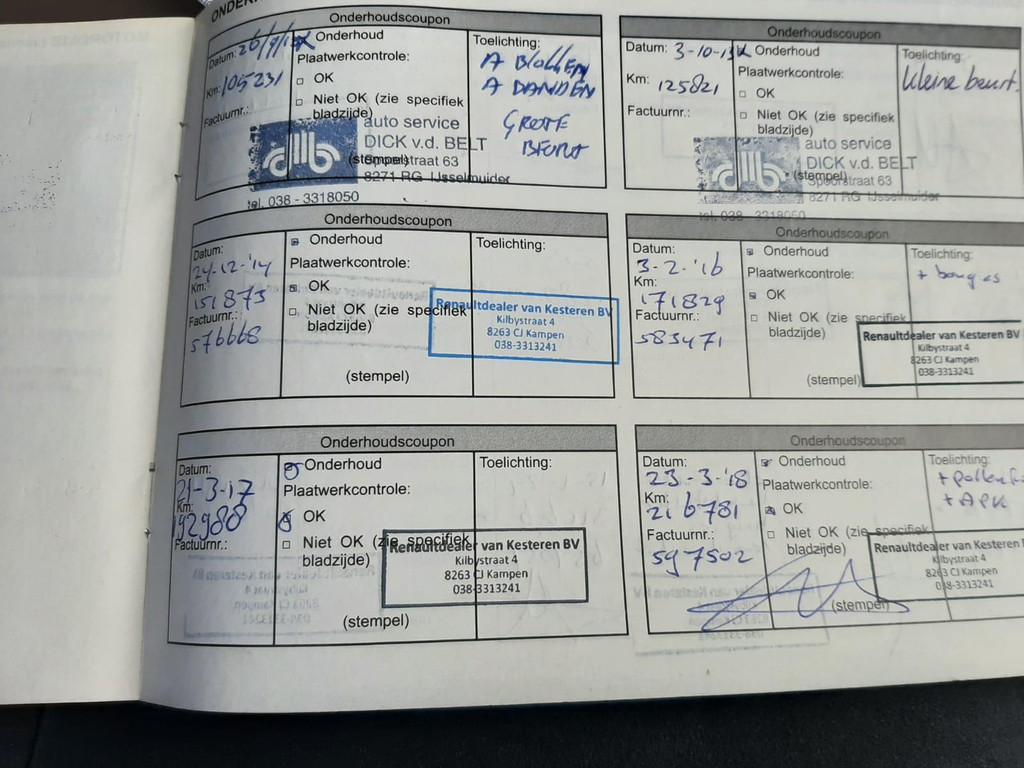 Onderhoudscoupon
Datum: 26/9/12
Km: 105231
Factuurnr.:
Onderhoud
Plaatwerkcontrole:
OK
Niet OK (zie specifiek
bladzijde)
(stempel)
Toelichting:
A Blokken
A BANDEN
GROTE
BEURT
dvb
auto service
DICK v.d. BELT
Spoorstraat 63
8271 RG IJsselmuiden
tel. 038 - 3318050
Onderhoudscoupon
Datum: 3-10-13
Km: 125821
Factuurnr.:
Onderhoud
Plaatwerkcontrole:
OK
Niet OK (zie specifiek
bladzijde)
(stempel)
Toelichting:
Kleine beurt.
dvb
auto service
DICK v.d. BELT
Spoorstraat 63
8271 RG IJsselmuiden
tel. 038 - 3318050
Onderhoudscoupon
Datum:
24-12-'14
Km:
151873
Factuurnr.:
576668
Onderhoud
Plaatwerkcontrole:
OK
Niet OK (zie specifiek
bladzijde)
(stempel)
Toelichting:
Renaultdealer van Kesteren BV
Kilbystraat 4
8263 CJ Kampen
038-3313241
Onderhoudscoupon
Datum:
3-2-'16
Km:
171829
Factuurnr.:
583471
Onderhoud
Plaatwerkcontrole:
OK
Niet OK (zie specifiek
bladzijde)
(stempel)
Toelichting:
+ bougies
Renaultdealer van Kesteren BV
Kilbystraat 4
8263 CJ Kampen
038-3313241
Onderhoudscoupon
Datum:
21-3-17
Km:
192980
Factuurnr.:
Onderhoud
Plaatwerkcontrole:
OK
Niet OK (zie specifiek
bladzijde)
(stempel)
Toelichting:
Renaultdealer van Kesteren BV
Kilbystraat 4
8263 CJ Kampen
038-3313241
Onderhoudscoupon
Datum:
23-3-'18
Km:
216781
Factuurnr.:
597502
Onderhoud
Plaatwerkcontrole:
OK
Niet OK (zie specifiek
bladzijde)
(stempel)
Toelichting:
+ APK
Renaultdealer van Kesteren
Kilbystraat 4
8263 CJ Kampen
038-3313241